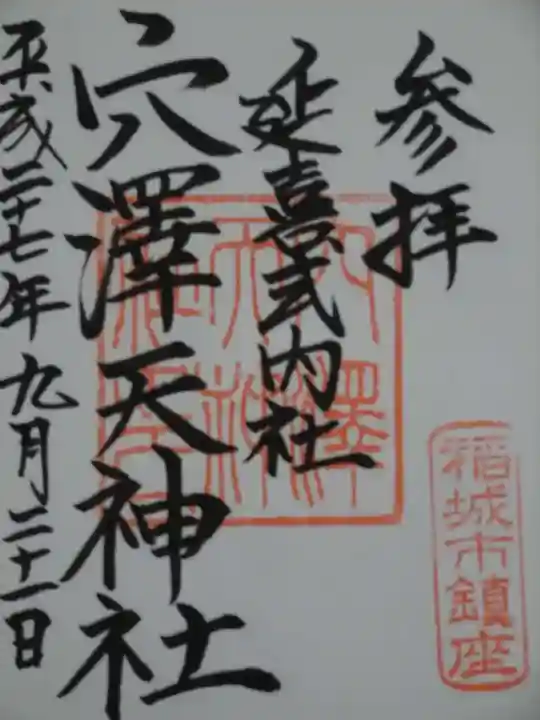 参拝
延喜式内社
穴澤天神社
平成二十七年九月二十一日
稲城市鎮座